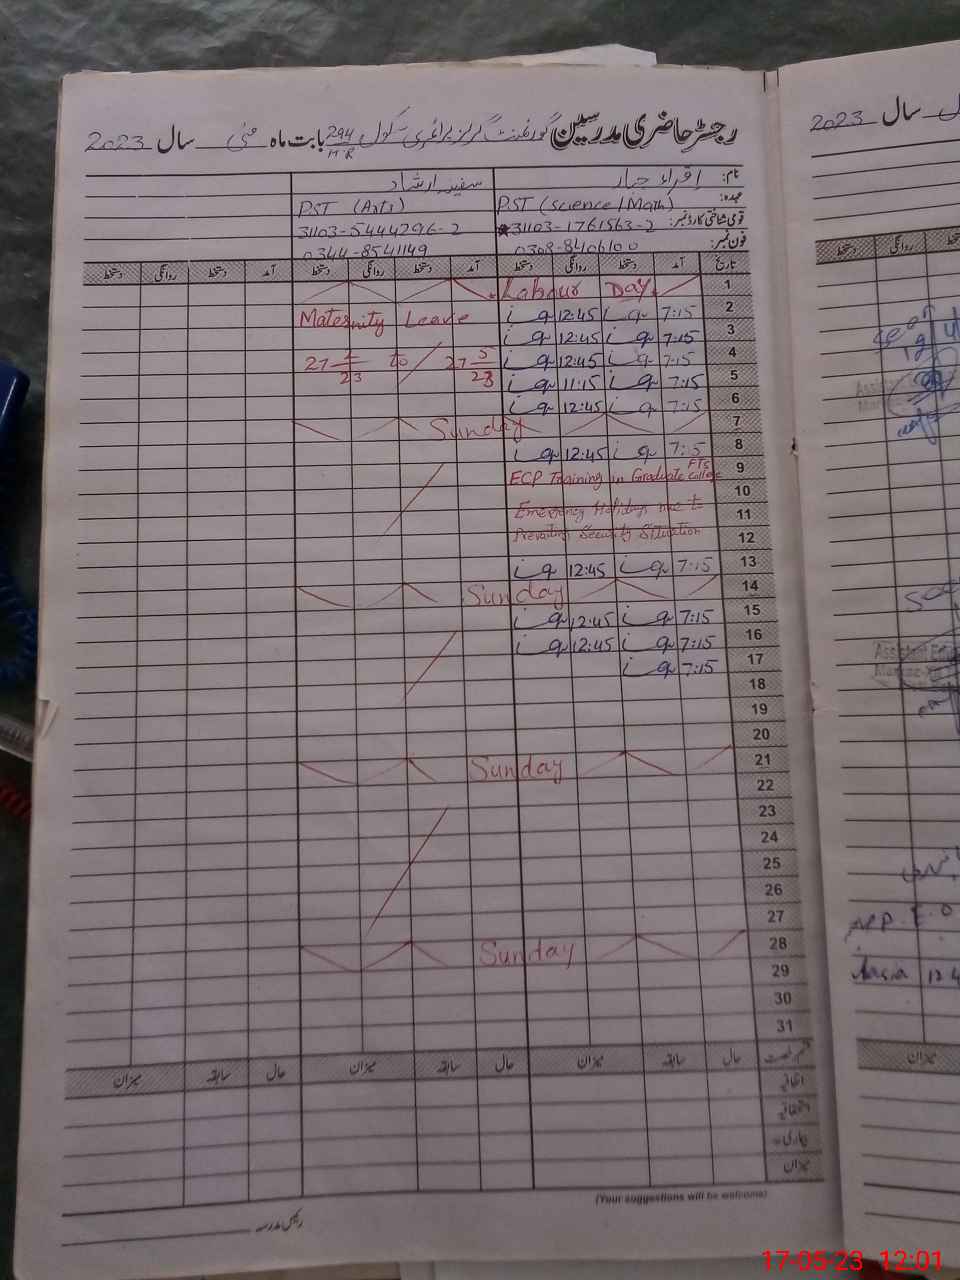 رجسٹر حاضری مدرسین گورنمنٹ گرلز پرائمری سکول 294/H.R بابت ماہ مئی سال 2023
نام: اقراء جبار سفینہ ارشاد
عہدہ: PST (Science/Math) PST (Arts)
قومی شناختی کارڈ نمبر: 31103-1761563-2 31103-5444296-2
فون نمبر: 0308-8406100 0344-8541149
تاریخ آمد دستخط روانگی دستخط آمد دستخط روانگی دستخط آمد دستخط روانگی دستخط
1 Labour Day
2 7:15 12:45 Maternity Leave
3 7:15 12:45
4 7:15 12:45 27 23 to 27 5 23
5 7:15 11:15
6 7:15 12:45
7 Sunday
8 7:15 12:45
9 ECP Training in Graduate College
10
11 Emergency Holidays due to
12 Prevailing Security Situation
13 7:15 12:45
14 Sunday
15 7:15 12:45
16 7:15 12:45
17 7:15
18
19
20
21 Sunday
22
23
24
25
26
27
28 Sunday
29
30
31
قسم رخصت حال سابقہ میزان حال سابقہ میزان حال سابقہ میزان
اتفاقیہ
استحقاقیہ
بیماری
میزان
(Your suggestions will be welcome)
رئیس مدرسہ
سال 2023
17-05-23 12:01